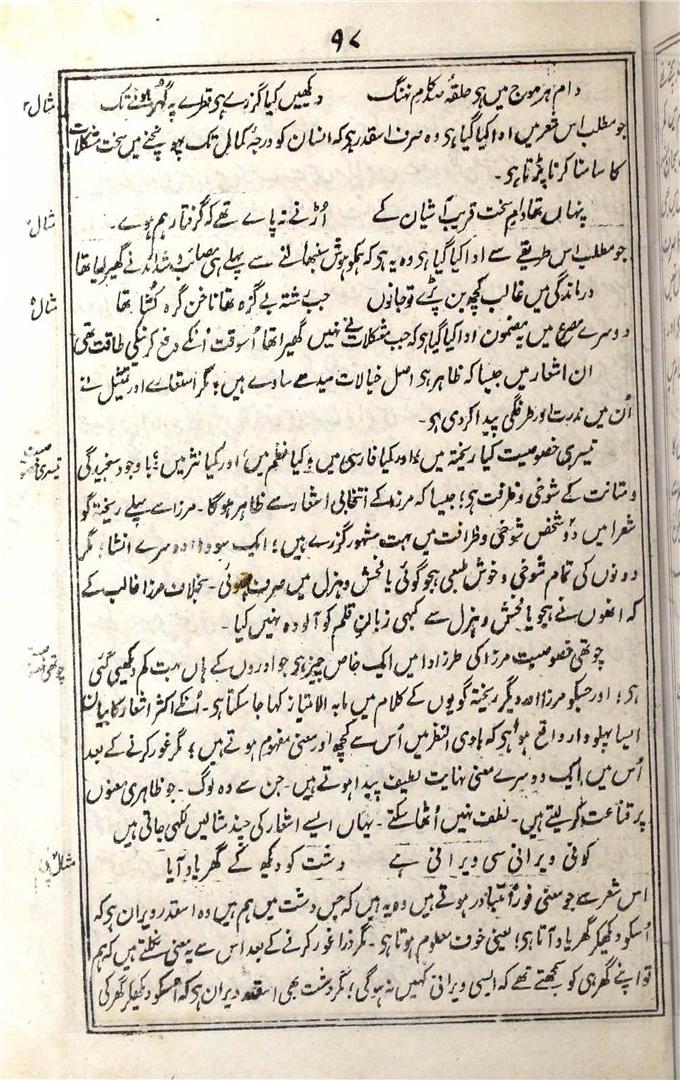 ٩٧
مثال ٣
دام ہر موج میں ہی حلقۂ صد کام نہنگ دیکھیں کیا گزرے ہی قطرے پہ گہر ہونے تک
جو مطلب اس شعر میں ادا کیا گیا ہی وہ صرف اسقدر ہی کہ انسان کو درجۂ کمال تک پہونچنے میں سخت مشکلات
کا سامنا کرنا پڑتا ہی۔
مثال
پنہاں تھا دام سخت قریب آشیان کے اڑنے نہ پائے تھے کہ گرفتار ہم ہوے۔
جو مطلب اس طریقے سے ادا کیا گیا ہی وہ یہ ہی کہ ہمکو ہوش سنبھالنے سے پہلے ہی مصائب و شدائد نے گھیر لیا تھا
مثال ۵
درماندگی میں غالب کچھ بن پڑے تو جانوں جب رشتہ بے گرہ تھا ناخن گرہ کشا تھا
دوسرے مصرع میں یہ مضمون ادا کیا گیا ہی کہ جب مشکلات نے نہیں گھیرا تھا اُسوقت اُنکے دفع کرنیکی طاقت تھی
ان اشعار میں جیسا کہ ظاہر ہی اصل خیالات سیدھے سادے ہیں؛ مگر استعارے اور تمثیل نے
اُن میں ندرت اور طرفگی پیدا کردی ہی۔
تیسری خصوصیت
تیسری خصوصیت کیا ریختہ میں؛ اور کیا فارسی میں؛ کیا نظم میں؛ اور کیا نثر میں؛ باوجود سنجیدگی
و متانت کے شوخی و ظرافت ہی؛ جیسا کہ مرزا کے انتخابی اشعار سے ظاہر ہوگا۔ مرزا سے پہلے ریختہ گو
شعرا میں دو شخص شوخی و ظرافت میں بہت مشہور گزرے ہیں؛ ایک سودا دوسرے انشا؛ مگر
دونوں کی تمام شوخی و خوش طبعی ہجوگوئی یا فحش و ہزل میں صرف ہوئی۔ بخلاف مرزا غالب کے
کہ انھوں نے ہجو یا فحش و ہزل سے کبھی زبان قلم کو آلودہ نہیں کیا۔
چوتھی خصوصیت
چوتھی خصوصیت مرزا کی طرز ادا میں ایک خاص چیز ہی جو اوروں کے ہاں بہت کم دیکھی گئی
ہی؛ اور جسکو مرزا اور دیگر ریختہ گویوں کے کلام میں مابہ الامتیاز کہا جا سکتا ہی۔ اُنکے اکثر اشعار کا بیان
ایسا پہلودار واقع ہوا ہی کہ بادی النظر میں اُس سے کچھ اور معنی مفہوم ہوتے ہیں؛ مگر غور کرنے کے بعد
اُس میں ایک دوسرے معنی نہایت لطیف پیدا ہوتے ہیں۔ جن سے وہ لوگ۔ جو ظاہری معنوں
پر قناعت کر لیتے ہیں۔ لطف نہیں اُٹھا سکتے۔ یہاں ایسے اشعار کی چند مثالیں لکھی جاتی ہیں
مثال
کوئی ویرانی سی ویرانی ہے دشت کو دیکھ کے گھر یاد آیا
اس شعر سے جو معنی فوراً متبادر ہوتے ہیں وہ یہ ہیں کہ جس دشت میں ہم ہیں وہ اسقدر ویران ہی کہ
اُسکو دیکھکر گھر یاد آتا ہی؛ یعنی خوف معلوم ہوتا ہی۔ مگر ذرا غور کرنے کے بعد اس سے یہ معنی نکلتے ہیں کہ ہم
تو اپنے گھر ہی کو سمجھتے تھے کہ ایسی ویرانی کہیں نہ ہوگی؛ مگر دشت بھی اسقدر ویران ہی کہ اُسکو دیکھکر گھر کی